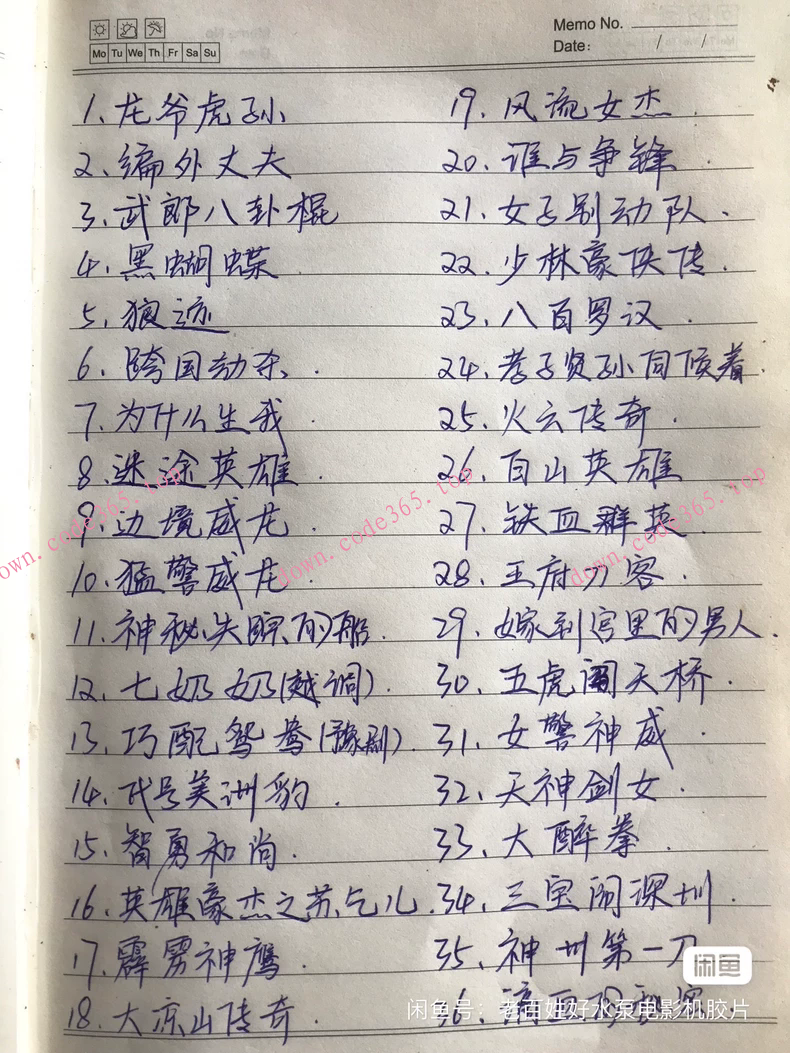 Memo No.
Date: / /
Mo Tu We Th Fr Sa Su
1、龙爷虎孙
2、编外丈夫
3、武郎八卦棍
4、黑蝴蝶
5、狼迹
6、跨国劫杀.
7、为什么生我.
8、迷途英雄.
9、边境威龙.
10、猛警威龙.
11、神秘失踪的船
12、七奶奶(越调).
13、巧配鸳鸯(豫剧).
14、代号美洲豹.
15、智勇和尚.
16、英雄豪杰之苏乞儿.
17、霹雳神鹰.
18、大凉山传奇.
19、风流女杰.
20、谁与争锋.
21、女子别动队.
22、少林豪侠传.
23、八百罗汉.
24、孝子贤孙伺候着.
25、火云传奇.
26、白山英雄
27、铁血群英.
28、王府刀客.
29、嫁到宫里的男人.
30、五虎闹天桥.
31、女警神威.
32、天神剑女.
33、大醉拳.
34、三宝闹深圳.
35、神州第一刀
36、滴血
闲鱼
闲鱼号：老百姓好水泵电影机胶片
down.code365.top
down.code365.top
down.code365.top